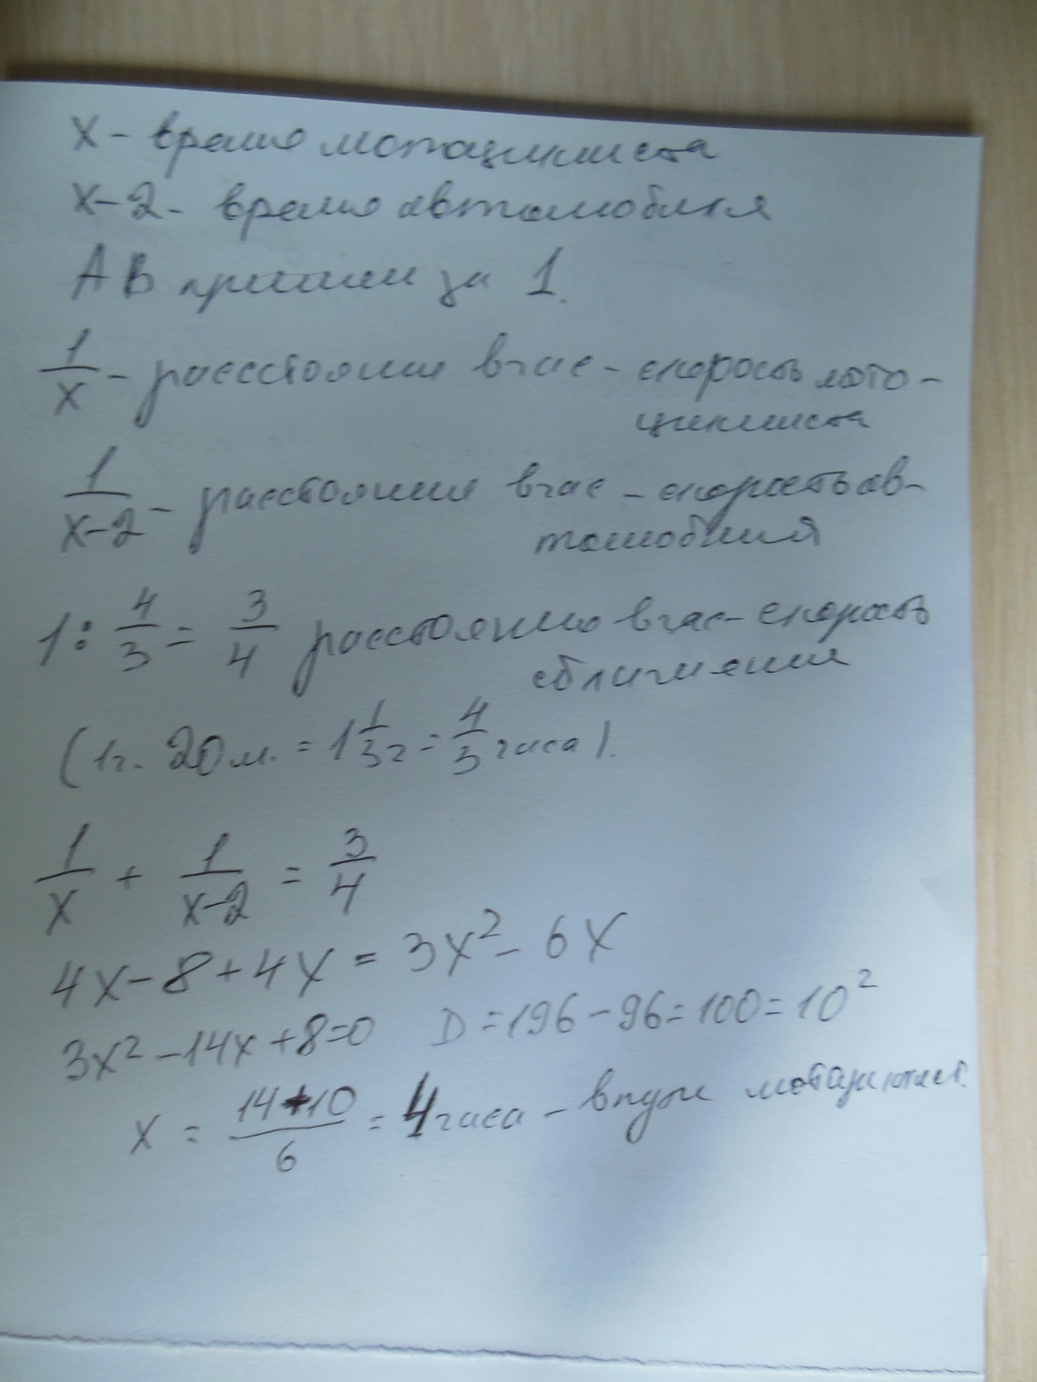 x - время мотоциклиста
x-2 - время автомобиля
AB примем за 1.
1/x - расстояние в час - скорость мото-
циклиста
1/(x-2) - расстояние в час - скорость ав-
томобиля
1 : 4/3 = 3/4 расстояние в час - скорость
сближения
(1ч. 20м. = 1 1/3 ч = 4/3 часа).
1/x + 1/(x-2) = 3/4
4x - 8 + 4x = 3x² - 6x
3x² - 14x + 8 = 0 D = 196 - 96 = 100 = 10²
x = (14+10)/6 = 4 часа - в пути мотоциклист.